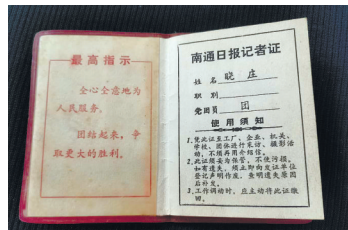 最高指示
全心全意地为
人民服务。
团结起来，争
取更大的胜利。
南通日报记者证
姓名 晓庄
职别
党团员 团
使用须知
1.凭此证至工厂、企业、机关、
学校、团体进行采访、摄影活
动，不须再用介绍信。
2.此证须妥为保管，不使污损。
如有遗失，须立即向发证单位
登记声明作废，查明遗失原因
后补发。
3.工作调动时，应主动将此证缴
回。